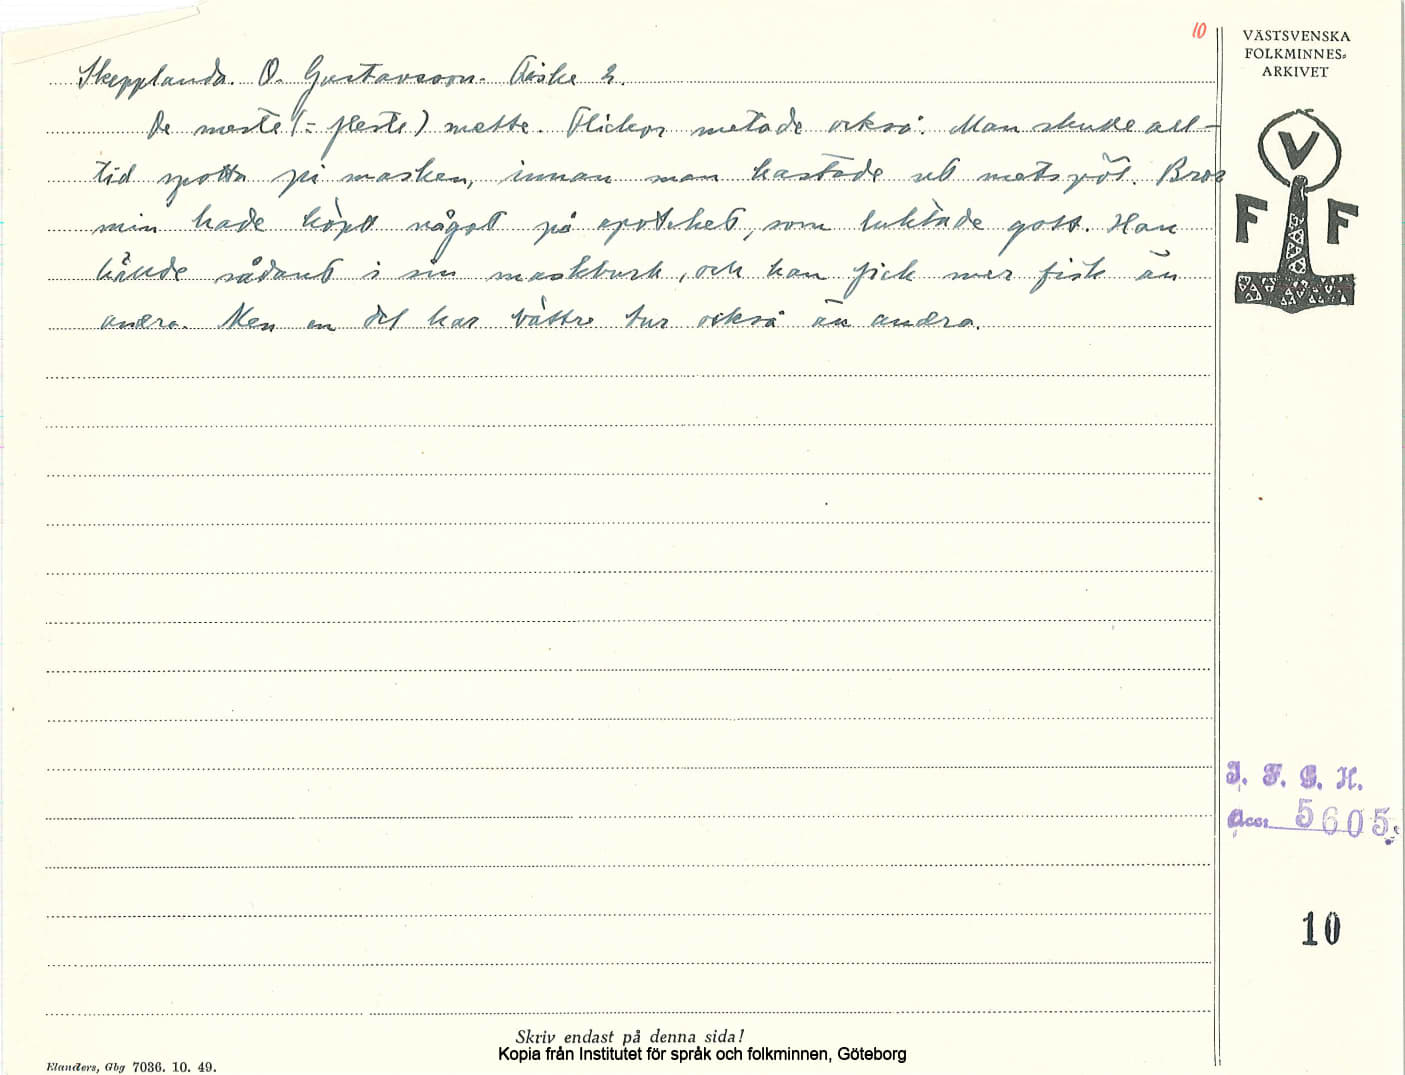 10
VÄSTSVENSKA
FOLKMINNES-
ARKIVET
V
F F
Skepplanda. O. Gustavsson. Fiske 2.
De meste (= fleste) mette. Flickor metade också. Man skulle all-
tid spotta på masken, innan man kastade ut metspöt. Bror
min hade köpt något på apoteket, som luktade gott. Han
hällde sådant i sin maskburk, och han fick mer fisk än
andra. Men en del har bättre tur också än andra.
I. F. G. H.
Acc: 5605.
10
Skriv endast på denna sida!
Kopia från Institutet för språk och folkminnen, Göteborg
Elanders, Gbg 7036. 10. 49.